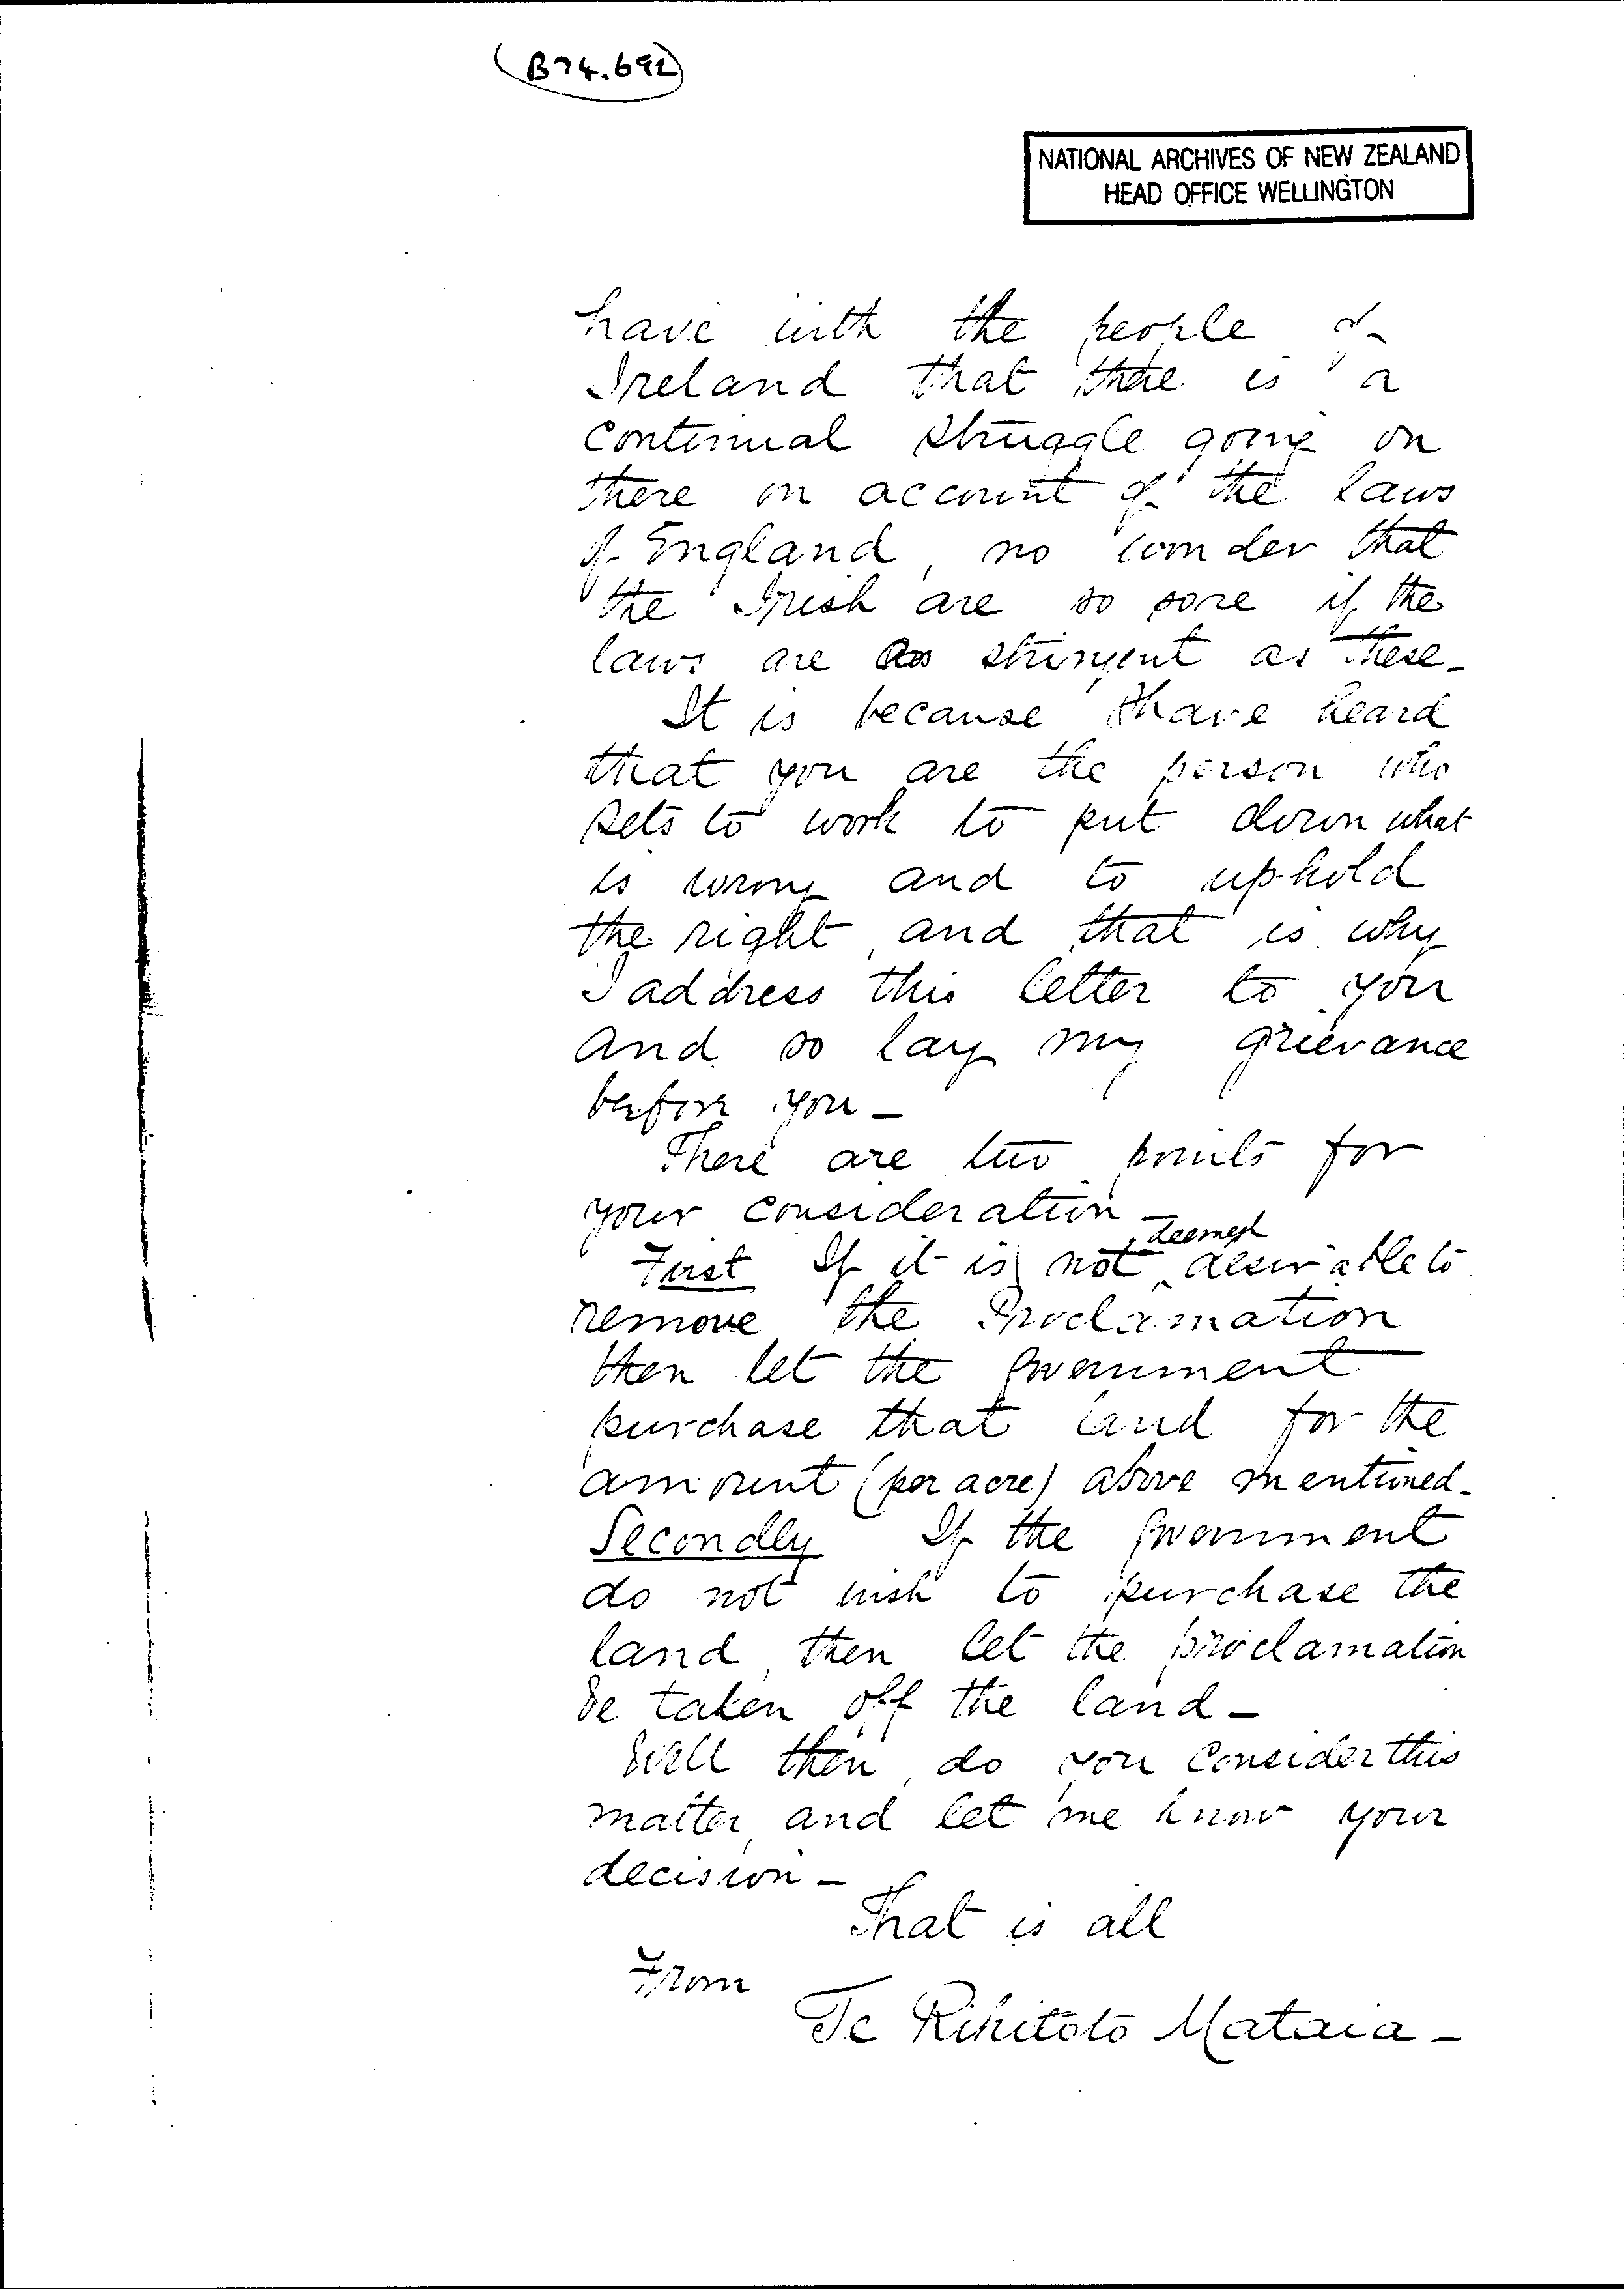 (B74.692)
NATIONAL ARCHIVES OF NEW ZEALAND
HEAD OFFICE WELLINGTON
have with the people of
Ireland that there is a
continual struggle going on
there on account of the laws
of England, no wonder that
the Irish are so sore if the
laws are as stringent as these_
It is because I have heard
that you are the person who
sets to work to put down what
is wrong and to uphold
the right, and that is why
I address this letter to you
and so lay my grievance
before you _
There are two points for
your consideration _
deemed
First If it is not ^ desirable to
remove the Proclamation
then let the Government
purchase that land for the
amount (per acre) above mentioned_
Secondly If the Government
do not wish to purchase the
land, then let the proclamation
be taken off the land _
Well then, do you consider this
matter, and let me know your
decision _
That is all
From
Te Rihitoto Mataia _